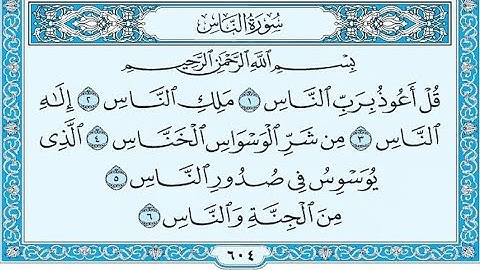 سُورَةُ النَّاسِ
بِسْمِ اللَّهِ الرَّحْمَٰنِ الرَّحِيمِ
قُلْ أَعُوذُ بِرَبِّ النَّاسِ ١ مَلِكِ النَّاسِ ٢ إِلَٰهِ
النَّاسِ ٣ مِن شَرِّ الْوَسْوَاسِ الْخَنَّاسِ ٤ الَّذِى
يُوَسْوِسُ فِى صُدُورِ النَّاسِ ٥
مِنَ الْجِنَّةِ وَالنَّاسِ ٦
٦٠٤